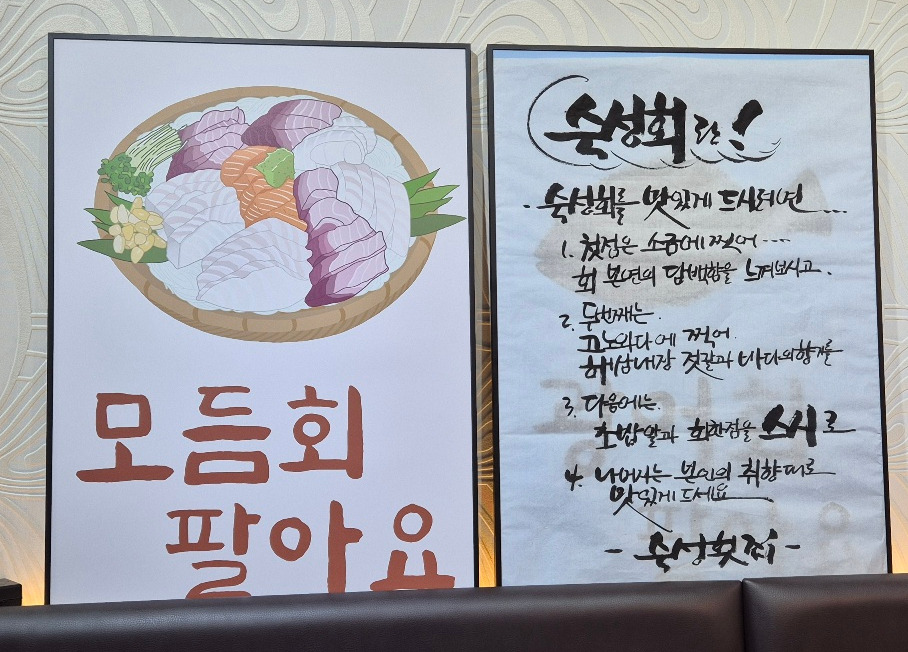 모듬회
팔아요
숙성회란!
숙성회를 맛있게 드시려면...
1. 첫점은 소금에 찍어....
회 본연의 담백함을 느껴보시고.
2. 두번째는.
고노와다에 찍어.
해삼내장 젓갈과 바다의향기를
3. 다음에는.
초밥알과 회한점을 스시로
4. 나머지는 본인의 취향대로
맛있게드세요
- 숙성횟찌 -